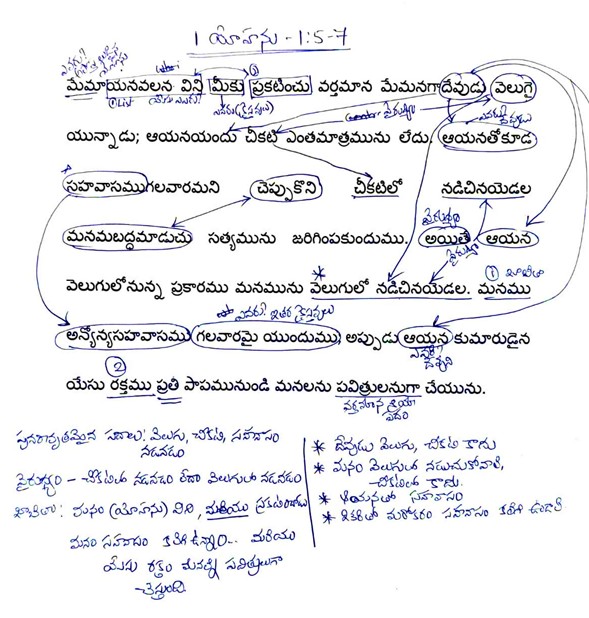 1 యోహాను - 1:5-7
ఎవరు?
మేమాయనవలన విని మీకు ప్రకటించు వర్తమాన మేమనగాదేవుడు వెలుగై
① List
యున్నాడు; ఆయనయందు చీకటి ఎంతమాత్రమును లేదు. ఆయనతోకూడ
సహవాసముగలవారమని చెప్పుకొని చీకటిలో నడిచినయెడల
వైరుధ్యం
మనమబద్ధమాడుచు సత్యమును జరిగింపకుందుము. అయితే ఆయన
వెలుగులోనున్న ప్రకారము మనమును వెలుగులో నడిచినయెడల. మనము
ఎవరు? ఇతర క్రైస్తవులు
అన్యోన్యసహవాసము గలవారమై యుందుము; అప్పుడు ఆయన కుమారుడైన
②
యేసు రక్తము ప్రతి పాపమునుండి మనలను పవిత్రులనుగా చేయును.
వర్తమాన క్రియా పదం
పునరావృతమైన పదాలు: వెలుగు, చీకటి, సహవాసం
నడవడం
వైరుధ్యం – చీకటిలో నడవడం లేదా వెలుగులో నడవడం
జాబితా: మనం (యోహాను) విని, మరియు ప్రకటించాడు
మనం సహవాసం కలిగి ఉన్నాం... మరియు
యేసు రక్తం మనల్ని పవిత్రులుగా
చేస్తుంది.
* దేవుడు వెలుగు, చీకటి కాదు
* మనం వెలుగులో నడుచుకోవాలి,
చీకటిలో కాదు.
* ఆయనతో సహవాసం
* ఒకరితో మరొకరం సహవాసం కలిగి ఉండాలి